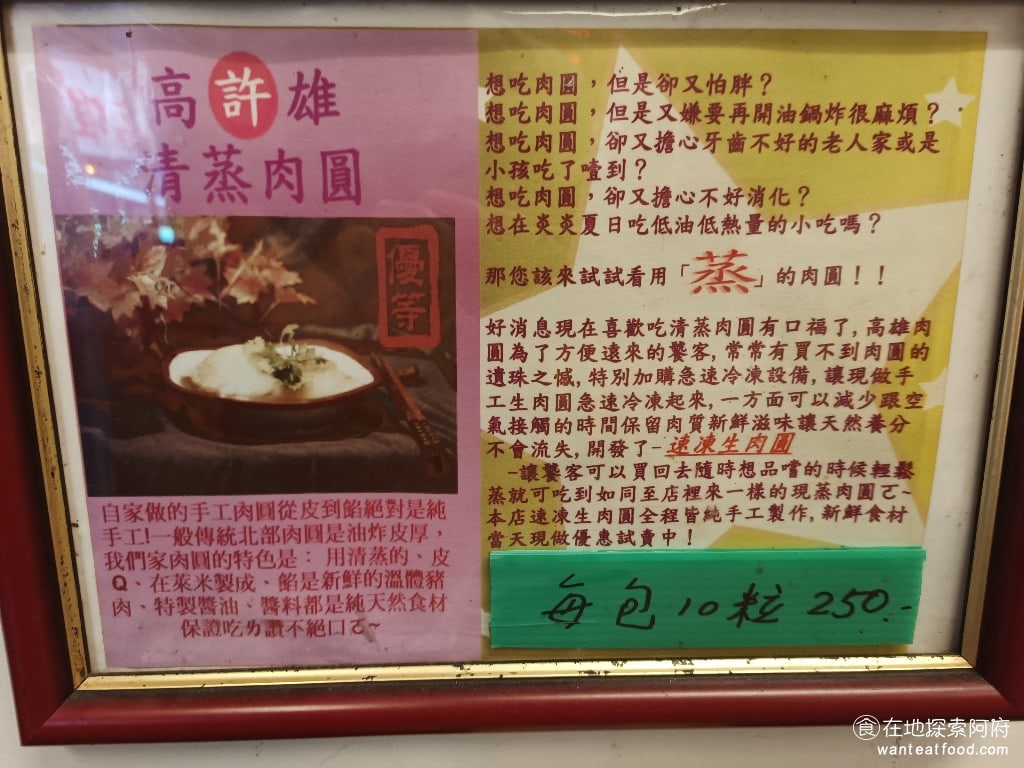 高許雄
清蒸肉圓
優等
自家做的手工肉圓從皮到餡絕對是純
手工!一般傳統北部肉圓是油炸皮厚，
我們家肉圓的特色是： 用清蒸的、皮
Q、在萊米製成、餡是新鮮的溫體豬
肉、特製醬油、醬料都是純天然食材
保證吃ㄌ讚不絕口ㄛ~
想吃肉圓，但是卻又怕胖？
想吃肉圓，但是又嫌要再開油鍋炸很麻煩？
想吃肉圓，卻又擔心牙齒不好的老人家或是
小孩吃了噎到？
想吃肉圓，卻又擔心不好消化？
想在炎炎夏日吃低油低熱量的小吃嗎？
那您該來試試看用「蒸」的肉圓！！
好消息現在喜歡吃清蒸肉圓有口福了,高雄肉
圓為了方便遠來的饕客,常常有買不到肉圓的
遺珠之憾,特別加購急速冷凍設備,讓現做手
工生肉圓急速冷凍起來,一方面可以減少跟空
氣接觸的時間保留肉質新鮮滋味讓天然養分
不會流失,開發了-速凍生肉圓
-讓饕客可以買回去隨時想品嚐的時候輕鬆
蒸就可吃到如同至店裡來一樣的現蒸肉圓ㄛ~
本店速凍生肉圓全程皆純手工製作,新鮮食材
當天現做優惠試賣中！
每包10粒 250.-
食在地探索阿府
wanteatfood.com